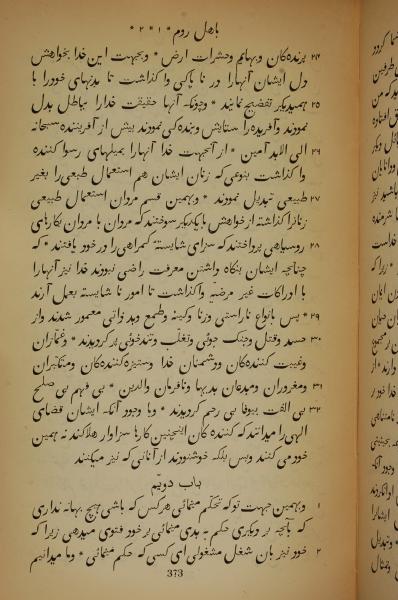 باهل روم * ۱ * ۲ *
۲۴ پرنده‌کان وبهایم وحشرات ارض * وبجهت این خدا بخواهش
دل ایشان آنهارا در ناپاکی واکذاشت تا بدنهای خودرا با
۲۵ همیدیکر تفضیح نمایند * وچونکه آنها حقیقت خدارا بباطل بدل
نمودند وآفریده‌را ستایش وبنده‌کی نمودند بیش از آفریننده سبحانه
۲۶ الی الابد آمین * از آنجهت خدا آنهارا بمیلهای رسوا کننده
واکذاشت بنوعی که زنان ایشان هم استعمال طبیعی‌را بغیر
۲۷ طبیعی تبدیل نمودند * وبهمین قسم مردان استعمال طبیعی
زنانرا کذاشته از خواهش با یکدیکر سوختند که مردان با مردان بکارهای
۲۸ روسیاهی پرداختند که سزای شایستهٔ کمراهی‌را در خود یافتند * که
چنانچه ایشان بنکاه داشتن معرفت راضی نبودند خدا نیز آنهارا
با ادراکات غیر مرضیه واکذاشت تا امور ناشایسته بعمل آرند
۲۹ * پس بانواع ناراستی وزنا وکینه وطمع وبدذاتی معمور شدند واز
۳۰ حسد وقتل وجنک جوئی وتغلب وتندخوئی پر کردیدند * وغمازان
وغیبت کننده‌کان ودشمنان خدا وستیزه‌کننده‌کان ومتکبران
۳۱ ومغروران ومبدعان بدیها ونافرمان والدین * بی فهم بی صلح
۳۲ بی الفت بیوفا بی رحم کردیدند * وبا وجود آنکه ایشان قضای
الهی‌را میدانند که کننده‌کان اینچنین کارها سزاوار هلاکند نه همین
خود می کنند وبس بلکه خوشنودند از آنانی که نیز میکنند
باب دویم
۱ وبهمین جهت توکه تحکم مینمائی هر کس که باشی هیچ بهانه نداری
که بآنچه بر دیکری حکم به بدی مینمائی بر خود فتوی میدهی زیرا که
۲ خود نیز بان شغل مشغولی ای کسی که حکم مینمائی * وما میدانیم
373